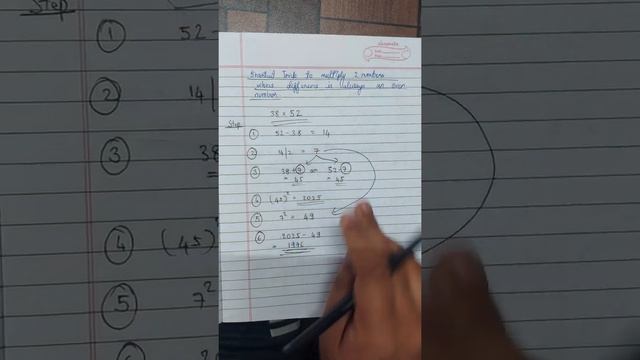 Shortcut Trick to multiply 2 numbers
whose difference is always an even
number.
38 x 52
Step
① 52 - 38 = 14
② 14/2 = 7
③ 38+7 or 52-7
= 45 = 45
④ (45)² = 2025
⑤ 7² = 49
⑥ 2025 - 49
= 1976
Step
①
52 -
②
14/
③
38
④
(45)
⑤
7²
⑥